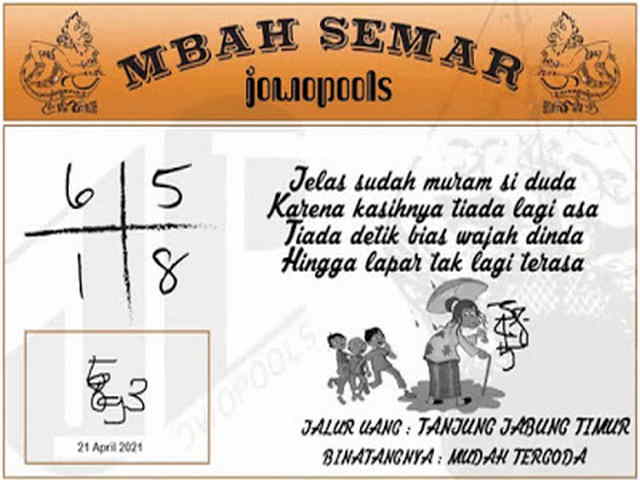 MBAH SEMAR
jowopools
6 5
1 8
Jelas sudah muram si duda
Karena kasihnya tiada lagi asa
Tiada detik bias wajah dinda
Hingga lapar tak lagi terasa
21 April 2021
JOWOPOOLS
JALUR UANG : TANJUNG JABUNG TIMUR
BINATANGNYA : MUDAH TERGODA